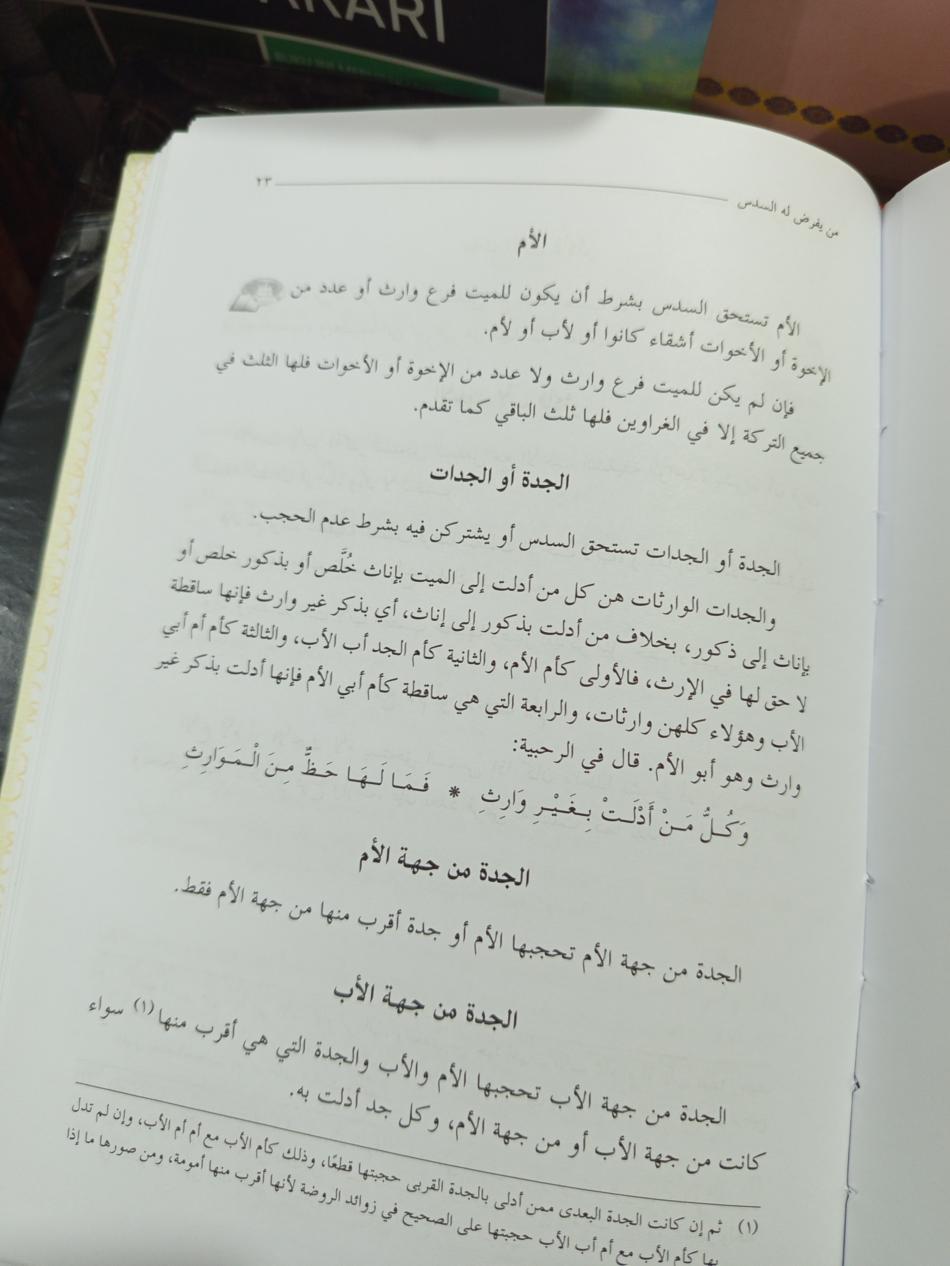 KARI
من يفرض له السدس ٢٣
الأم
الأم تستحق السدس بشرط أن يكون للميت فرع وارث أو عدد من
الإخوة أو الأخوات أشقاء كانوا أو لأب أو لأم.
فإن لم يكن للميت فرع وارث ولا عدد من الإخوة أو الأخوات فلها الثلث في
جميع التركة إلا في الغراوين فلها ثلث الباقي كما تقدم.
الجدة أو الجدات
الجدة أو الجدات تستحق السدس أو يشتركن فيه بشرط عدم الحجب.
والجدات الوارثات هن كل من أدلت إلى الميت بإناث خُلَّص أو بذكور خلص أو
بإناث إلى ذكور، بخلاف من أدلت بذكور إلى إناث، أي بذكر غير وارث فإنها ساقطة
لا حق لها في الإرث، فالأولى كأم الأم، والثانية كأم الجد أب الأب، والثالثة كأم أم أبي
الأب وهؤلاء كلهن وارثات، والرابعة التي هي ساقطة كأم أبي الأم فإنها أدلت بذكر غير
وارث وهو أبو الأم. قال في الرحبية:
وَكُلُّ مَنْ أَدْلَتْ بِغَيْرِ وَارِثِ * فَمَا لَهَا حَظٌّ مِنَ الْمَوَارِثِ
الجدة من جهة الأم
الجدة من جهة الأم تحجبها الأم أو جدة أقرب منها من جهة الأم فقط.
الجدة من جهة الأب
الجدة من جهة الأب تحجبها الأم والأب والجدة التي هي أقرب منها(١) سواء
كانت من جهة الأب أو من جهة الأم، وكل جد أدلت به.
(١) ثم إن كانت الجدة البعدى ممن أدلى بالجدة القربى حجبتها قطعًا، وذلك كأم الأب مع أم أم الأب، وإن لم تدل
بها كأم الأب مع أم أب الأب حجبتها على الصحيح في زوائد الروضة لأنها أقرب منها أمومة، ومن صورها ما إذا